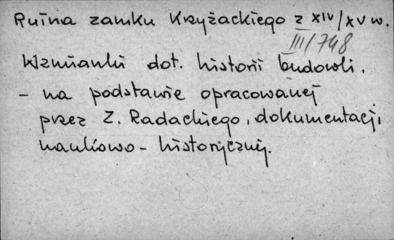 Ruina zamku Krzyżackiego z XIV/XV w.
III/748
Wzmianki dot. historii budowli.
- na podstawie opracowanej
przez Z. Radackiego, dokumentacji
naukowo-historycznej.